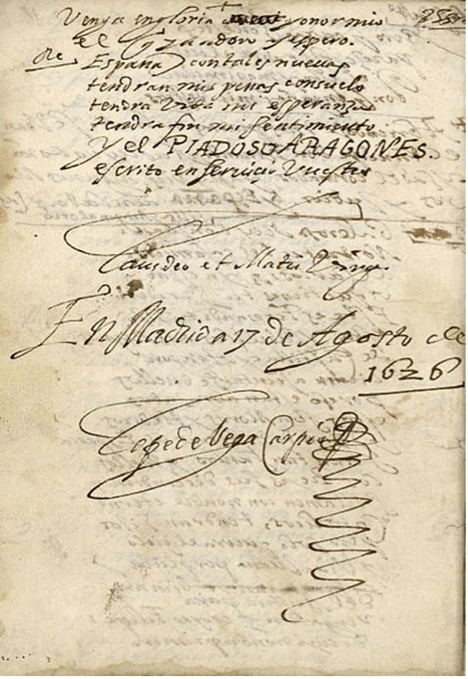 Venga en gloria y onor mio
el q̃ ya adoro y espero.
Re España, con tales nuevas
tendran mis penas consuelo
tendra vida mi esperanza
tendra fin mi sentimiento
y el PIADOSO ARAGONES.
escrito en servicio vuestro
Laus deo et Matri Virgi.
En Madrid a 17 de Agosto de
1626
Lope de Vega Carpio